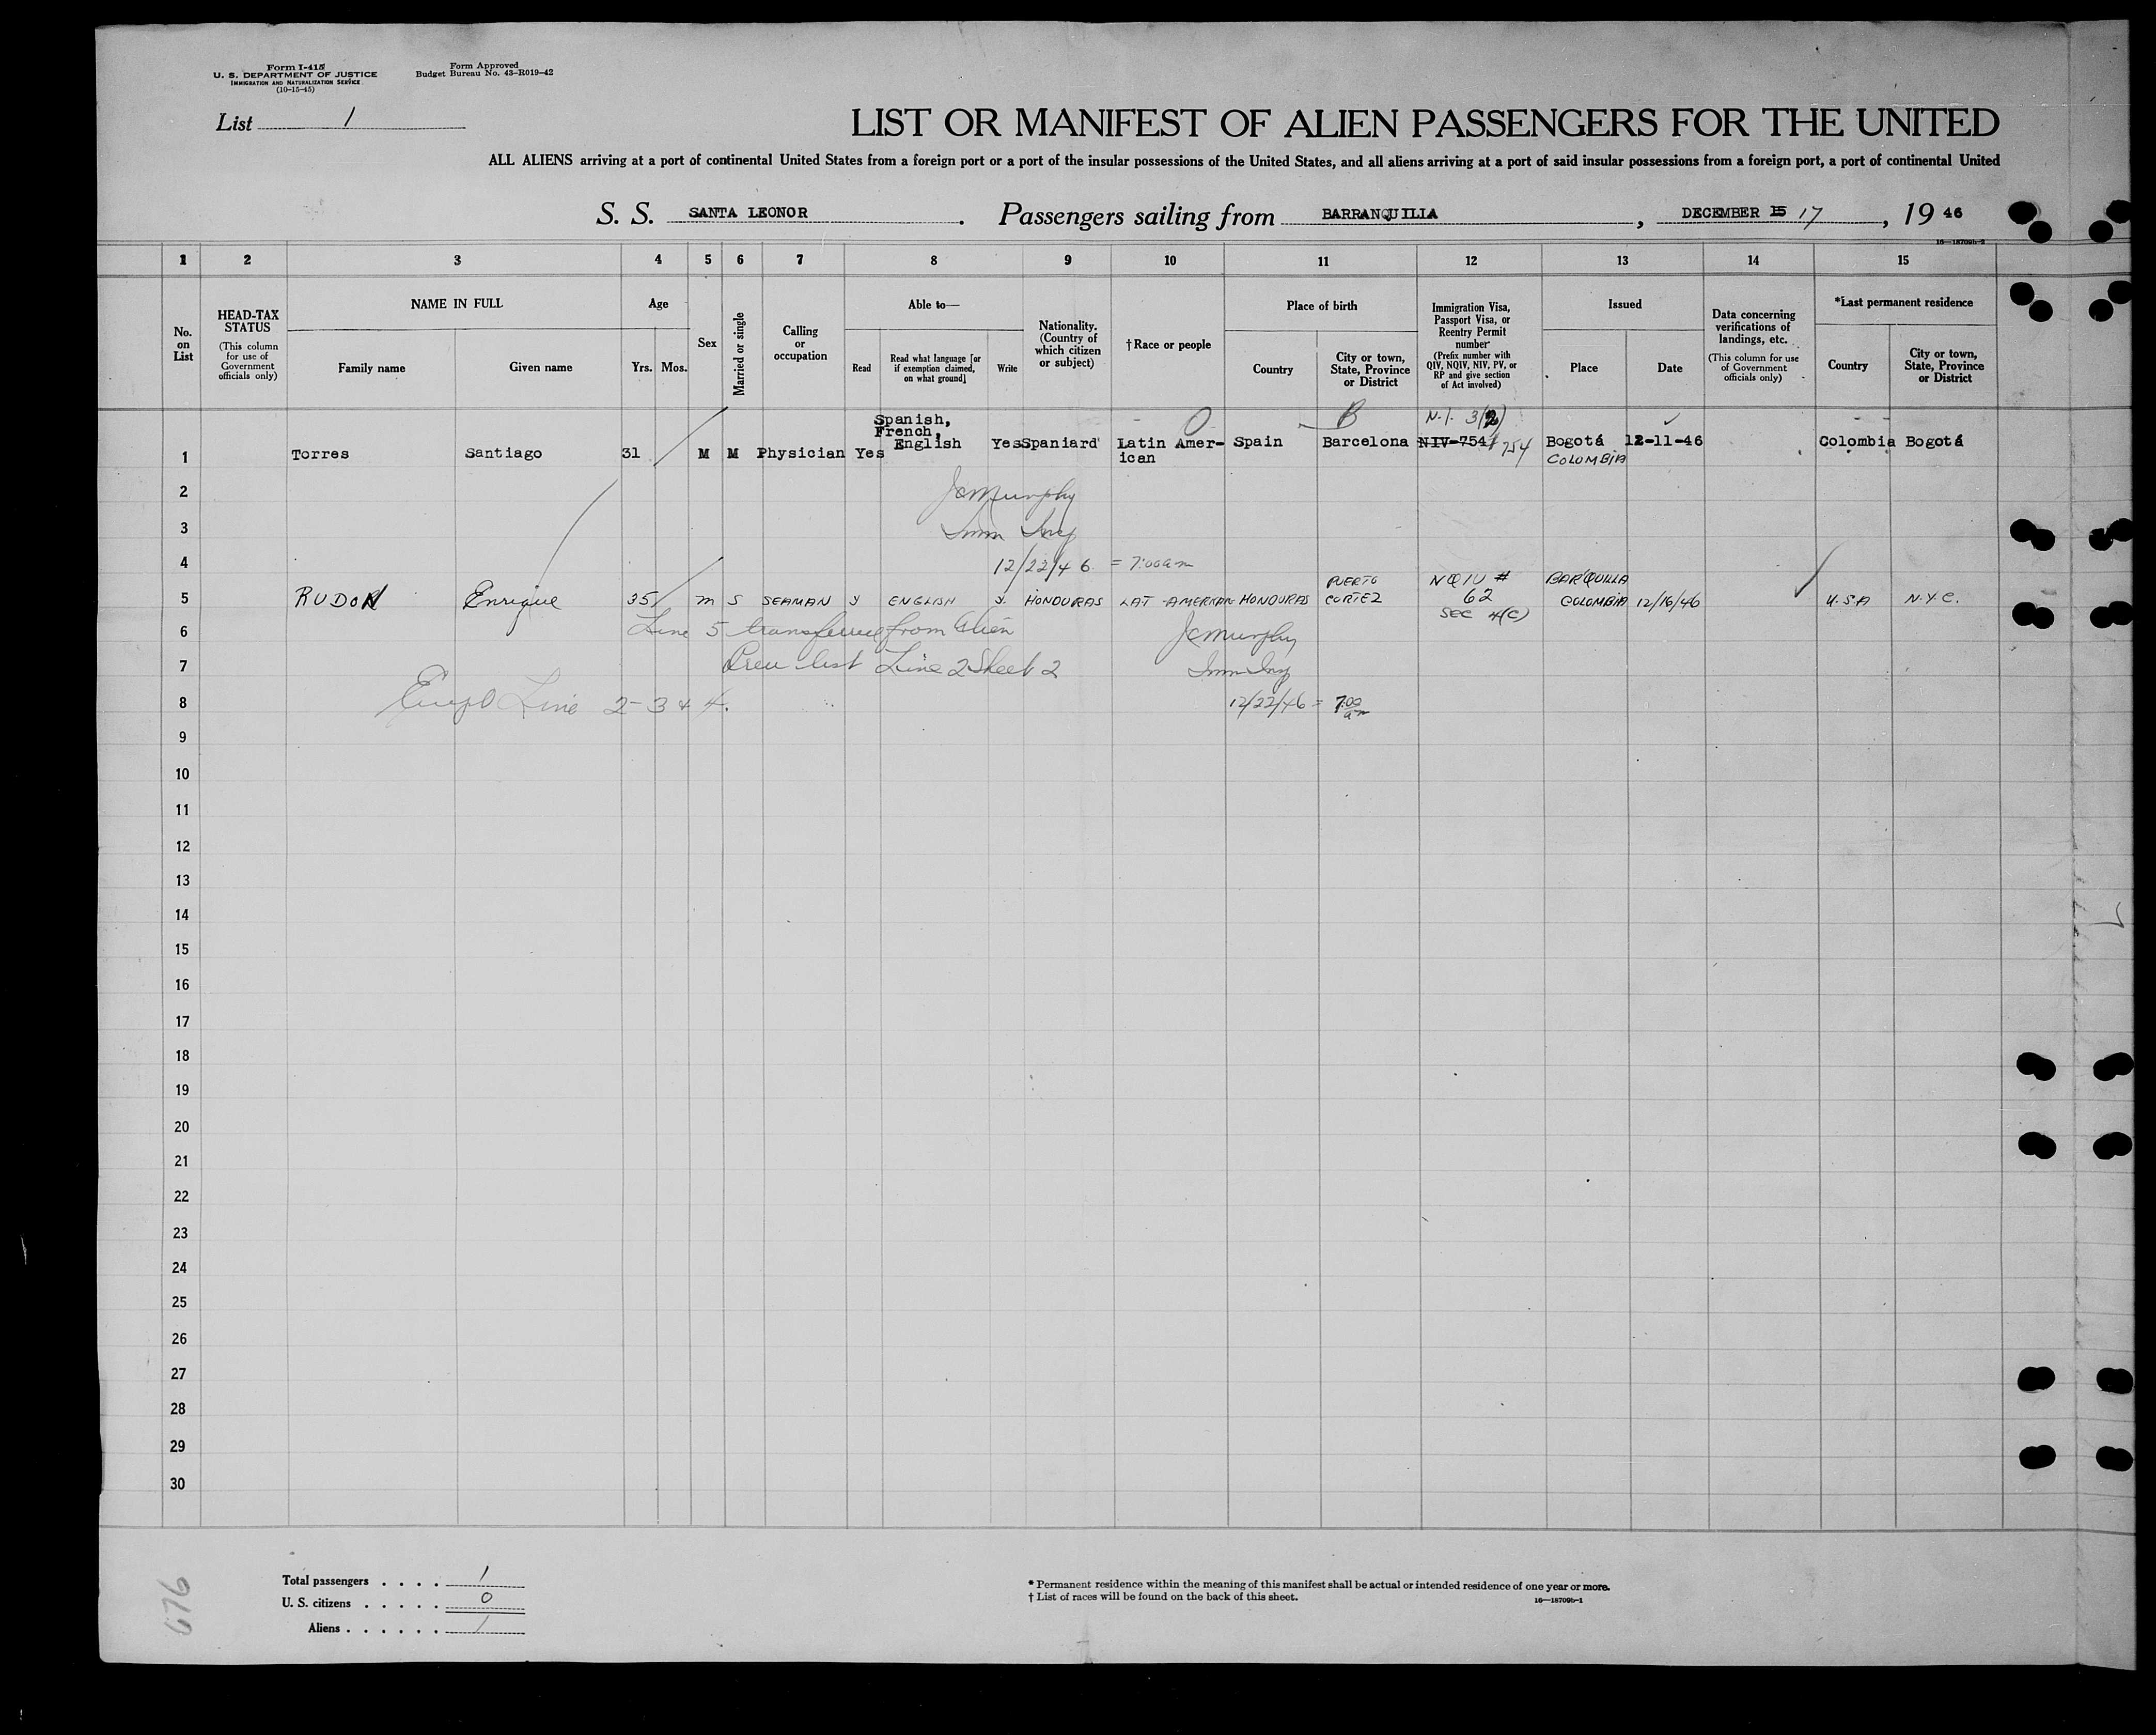 Form I-415
U. S. DEPARTMENT OF JUSTICE
IMMIGRATION AND NATURALIZATION SERVICE
(10-15-45)
Form Approved
Budget Bureau No. 43-R019-42
List 1
LIST OR MANIFEST OF ALIEN PASSENGERS FOR THE UNITED
ALL ALIENS arriving at a port of continental United States from a foreign port or a port of the insular possessions of the United States, and all aliens arriving at a port of said insular possessions from a foreign port, a port of continental United
S. S. SANTA LEONOR. Passengers sailing from BARRANQUILIA, DECEMBER 15 17, 19 46
16—18709b-2
1 2 3 4 5 6 7 8 9 10 11 12 13 14 15
No. on List
HEAD-TAX STATUS
(This column for use of Government officials only)
NAME IN FULL
Family name
Given name
Age
Yrs. Mos.
Sex
Married or single
Calling or occupation
Able to—
Read
Read what language [or if exemption claimed, on what ground]
Write
Nationality. (Country of which citizen or subject)
†Race or people
Place of birth
Country
City or town, State, Province or District
Immigration Visa, Passport Visa, or Reentry Permit number
(Prefix number with QIV, NQIV, NIV, PV, or RP and give section of Act involved)
Issued
Place
Date
Data concerning verifications of landings, etc.
(This column for use of Government officials only)
*Last permanent residence
Country
City or town, State, Province or District
1 Torres Santiago 31 M M Physician Yes Spanish, French, English Yes Spaniard Latin American Spain Barcelona NIV-754 754 Bogotá COLOMBIA 12-11-46 Colombia Bogotá
B
N.I. 3(2)
2 JCMurphy
3 Imm Insp
4 12/22/46 = 7:00am
5 RUDON Enrique 35 M S SEAMAN Y ENGLISH Y. HONDURAS LAT-AMERICAN HONDURAS PUERTO CORTEZ NQIV # 62 SEC 4(C) BAR'QUILLA COLOMBIA 12/16/46 U.S.A N.Y.C.
6 Line 5 transferred from Alien JCMurphy
7 Crew list Line 2 Sheet 2 Imm Insp
8 Line 2-3 & 4. 12/22/46 = 7:00 am
9
10
11
12
13
14
15
16
17
18
19
20
21
22
23
24
25
26
27
28
29
30
Total passengers . . . . 1
U. S. citizens . . . . . 0
Aliens . . . . . . 1
* Permanent residence within the meaning of this manifest shall be actual or intended residence of one year or more.
† List of races will be found on the back of this sheet.
16—18709b-1